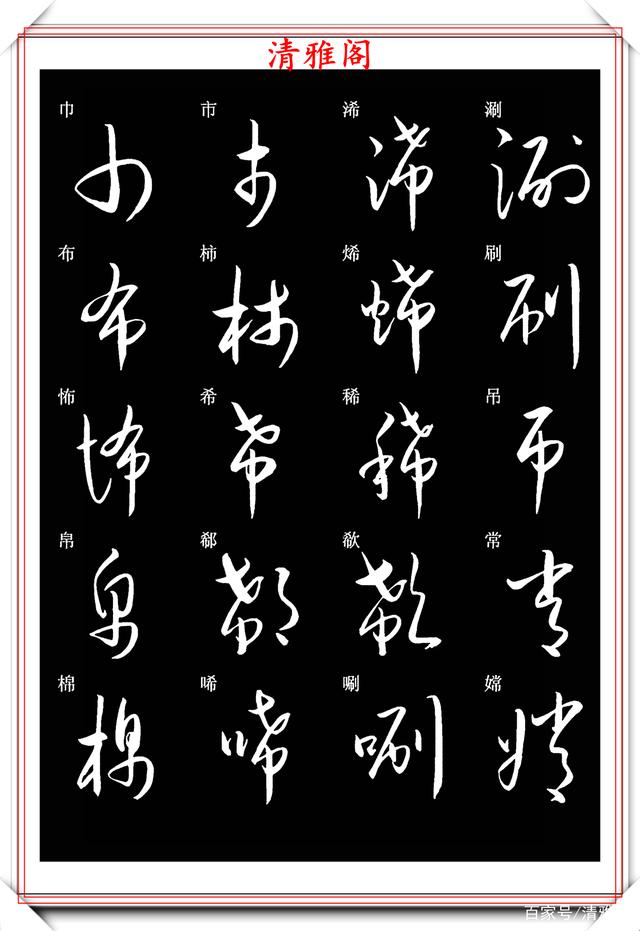 清雅阁
巾 市 浠 涮
布 柿 烯 刷
怖 希 稀 吊
帛 郗 欷 常
棉 唏 唰 嫦
百家号/清雅